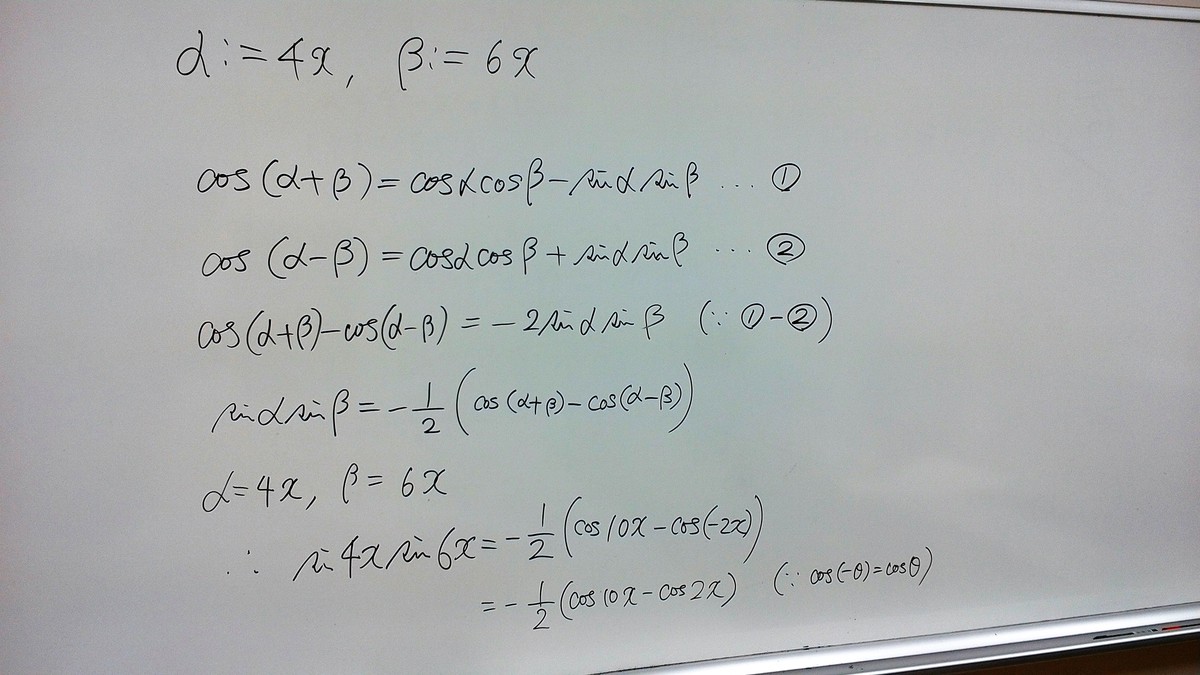 α := 4x, β := 6x
cos(α+β) = cosα cosβ - sinα sinβ ... ①
cos(α-β) = cosα cosβ + sinα sinβ ... ②
cos(α+β)-cos(α-β) = -2sinα sinβ (∵ ①-②)
sinα sinβ = -1/2 (cos(α+β)-cos(α-β))
α=4x, β=6x
∴ sin4x sin6x = -1/2 (cos10x - cos(-2x))
= -1/2 (cos10x - cos2x) (∵ cos(-θ)=cosθ)